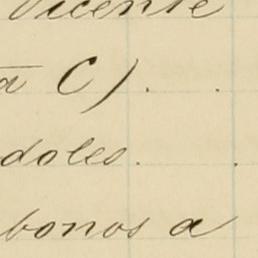 Vicente
a C) . .
doles . .
bonos a